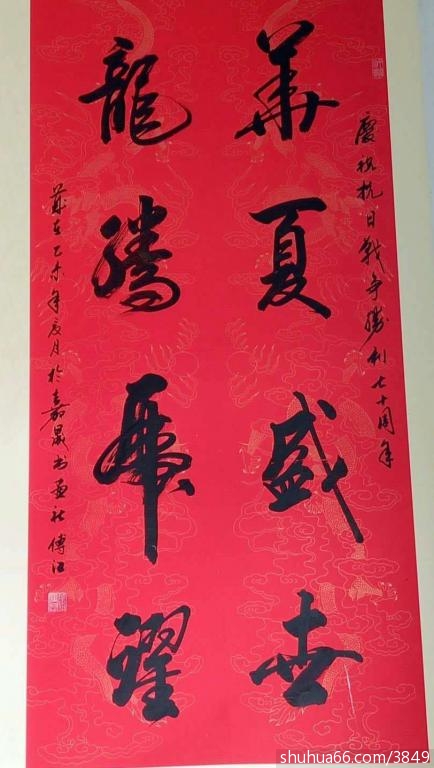 慶祝抗日戰爭勝利七十周年
華夏盛世
龍騰虎躍
歲在乙未年夏月於嘉晟书畫社傅江
shuhua66.com/3849